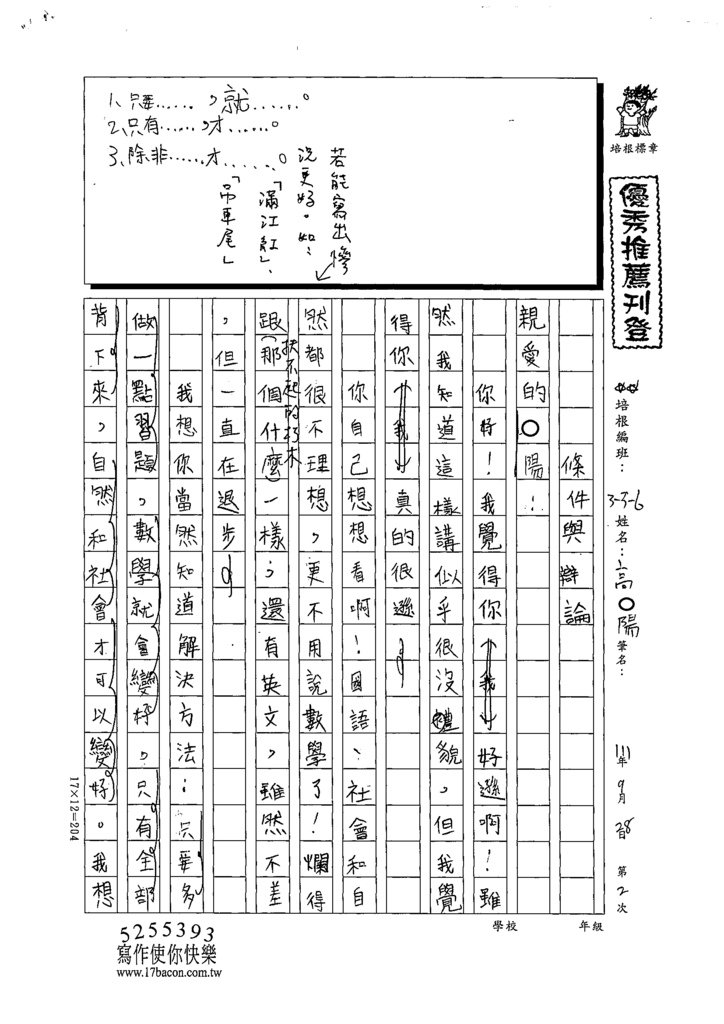 1、只要……，就……。
2、只有……，才……。
3、除非……才……。
若能寫出慘
況更好。如：
「滿江紅」、
「吊車尾」
培根標章
優秀推薦刊登
培根編班：3-3-6 姓名：高○陽 筆名：
111年9月28日 第2次
學校 年級
條件與辯論
親愛的○陽：
你好！我覺得你（我）好遜啊！雖
然我知道這樣講似乎很沒禮貌。但我覺
得你（我）真的很遜。
你自己想想看啊！國語、社會和自
然都很不理想，更不用說數學了！爛得
扶不起的朽木
跟（那個什麼一樣；還有英文，雖然不差
，但一直在退步。
我想你當然知道解決方法：只要多
做一點習題，數學就會變好。只有全部
背下來，自然和社會才可以變好。我想
17×12=204
5255393
寫作使你快樂
www.17bacon.com.tw